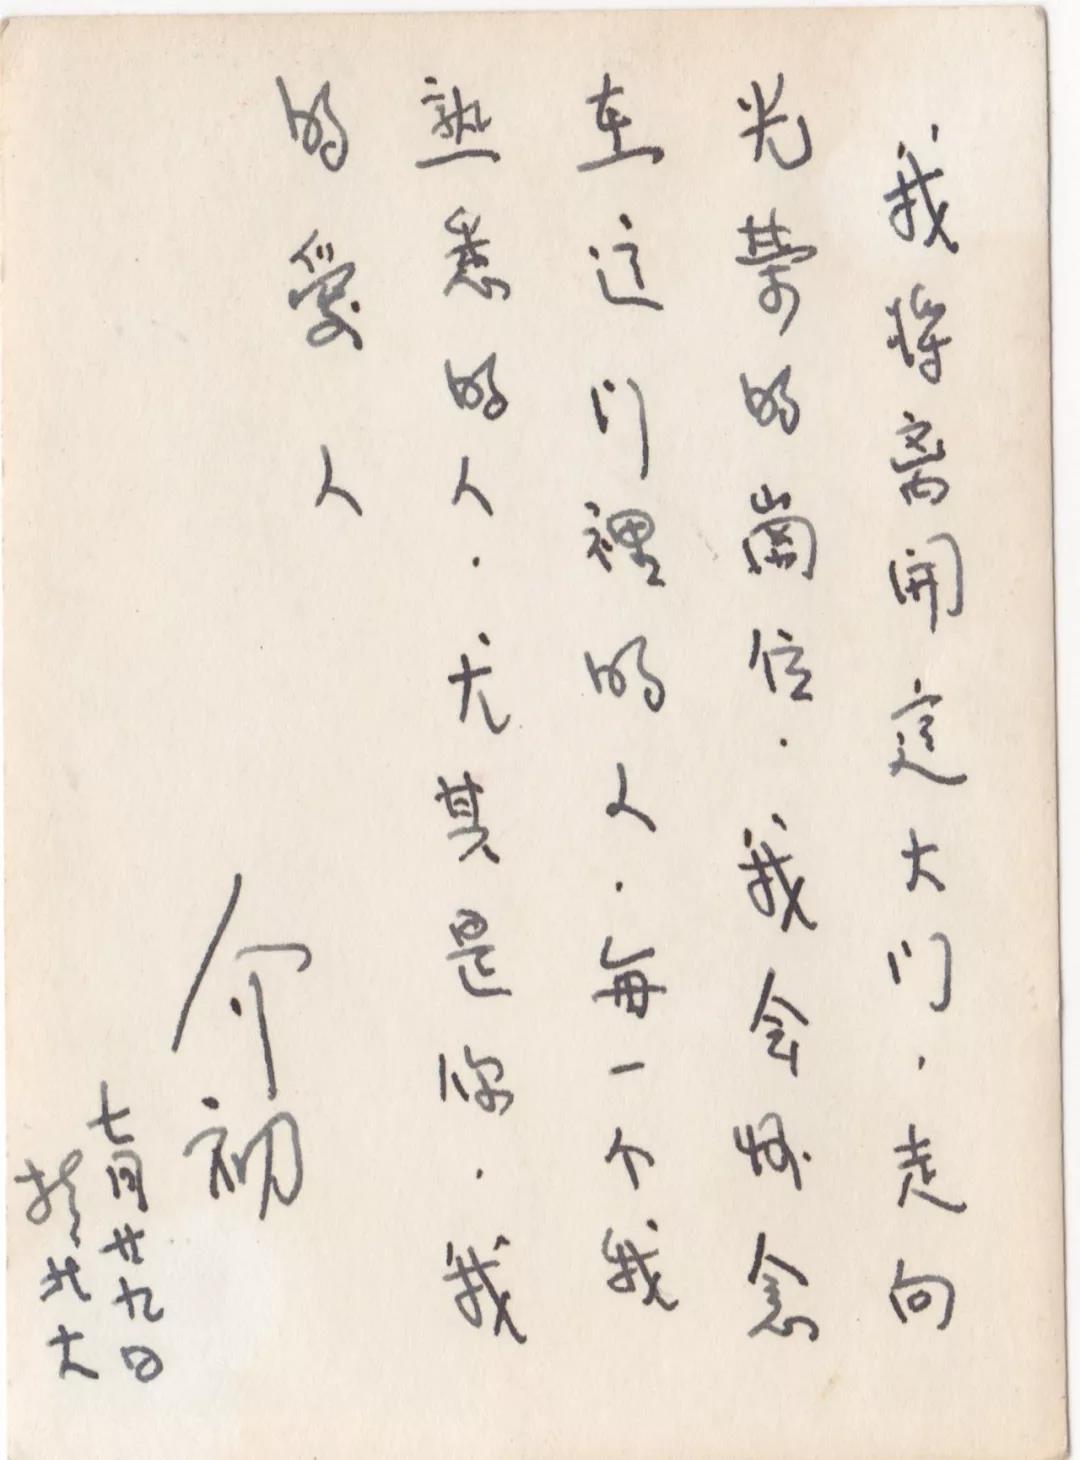 我將离開這大门.走向
光荣的崗位.我会怀念
在这门裡的人.每一个我
熟悉的人.尤其是你.我
的愛人
介初
七月廿九日
於北大